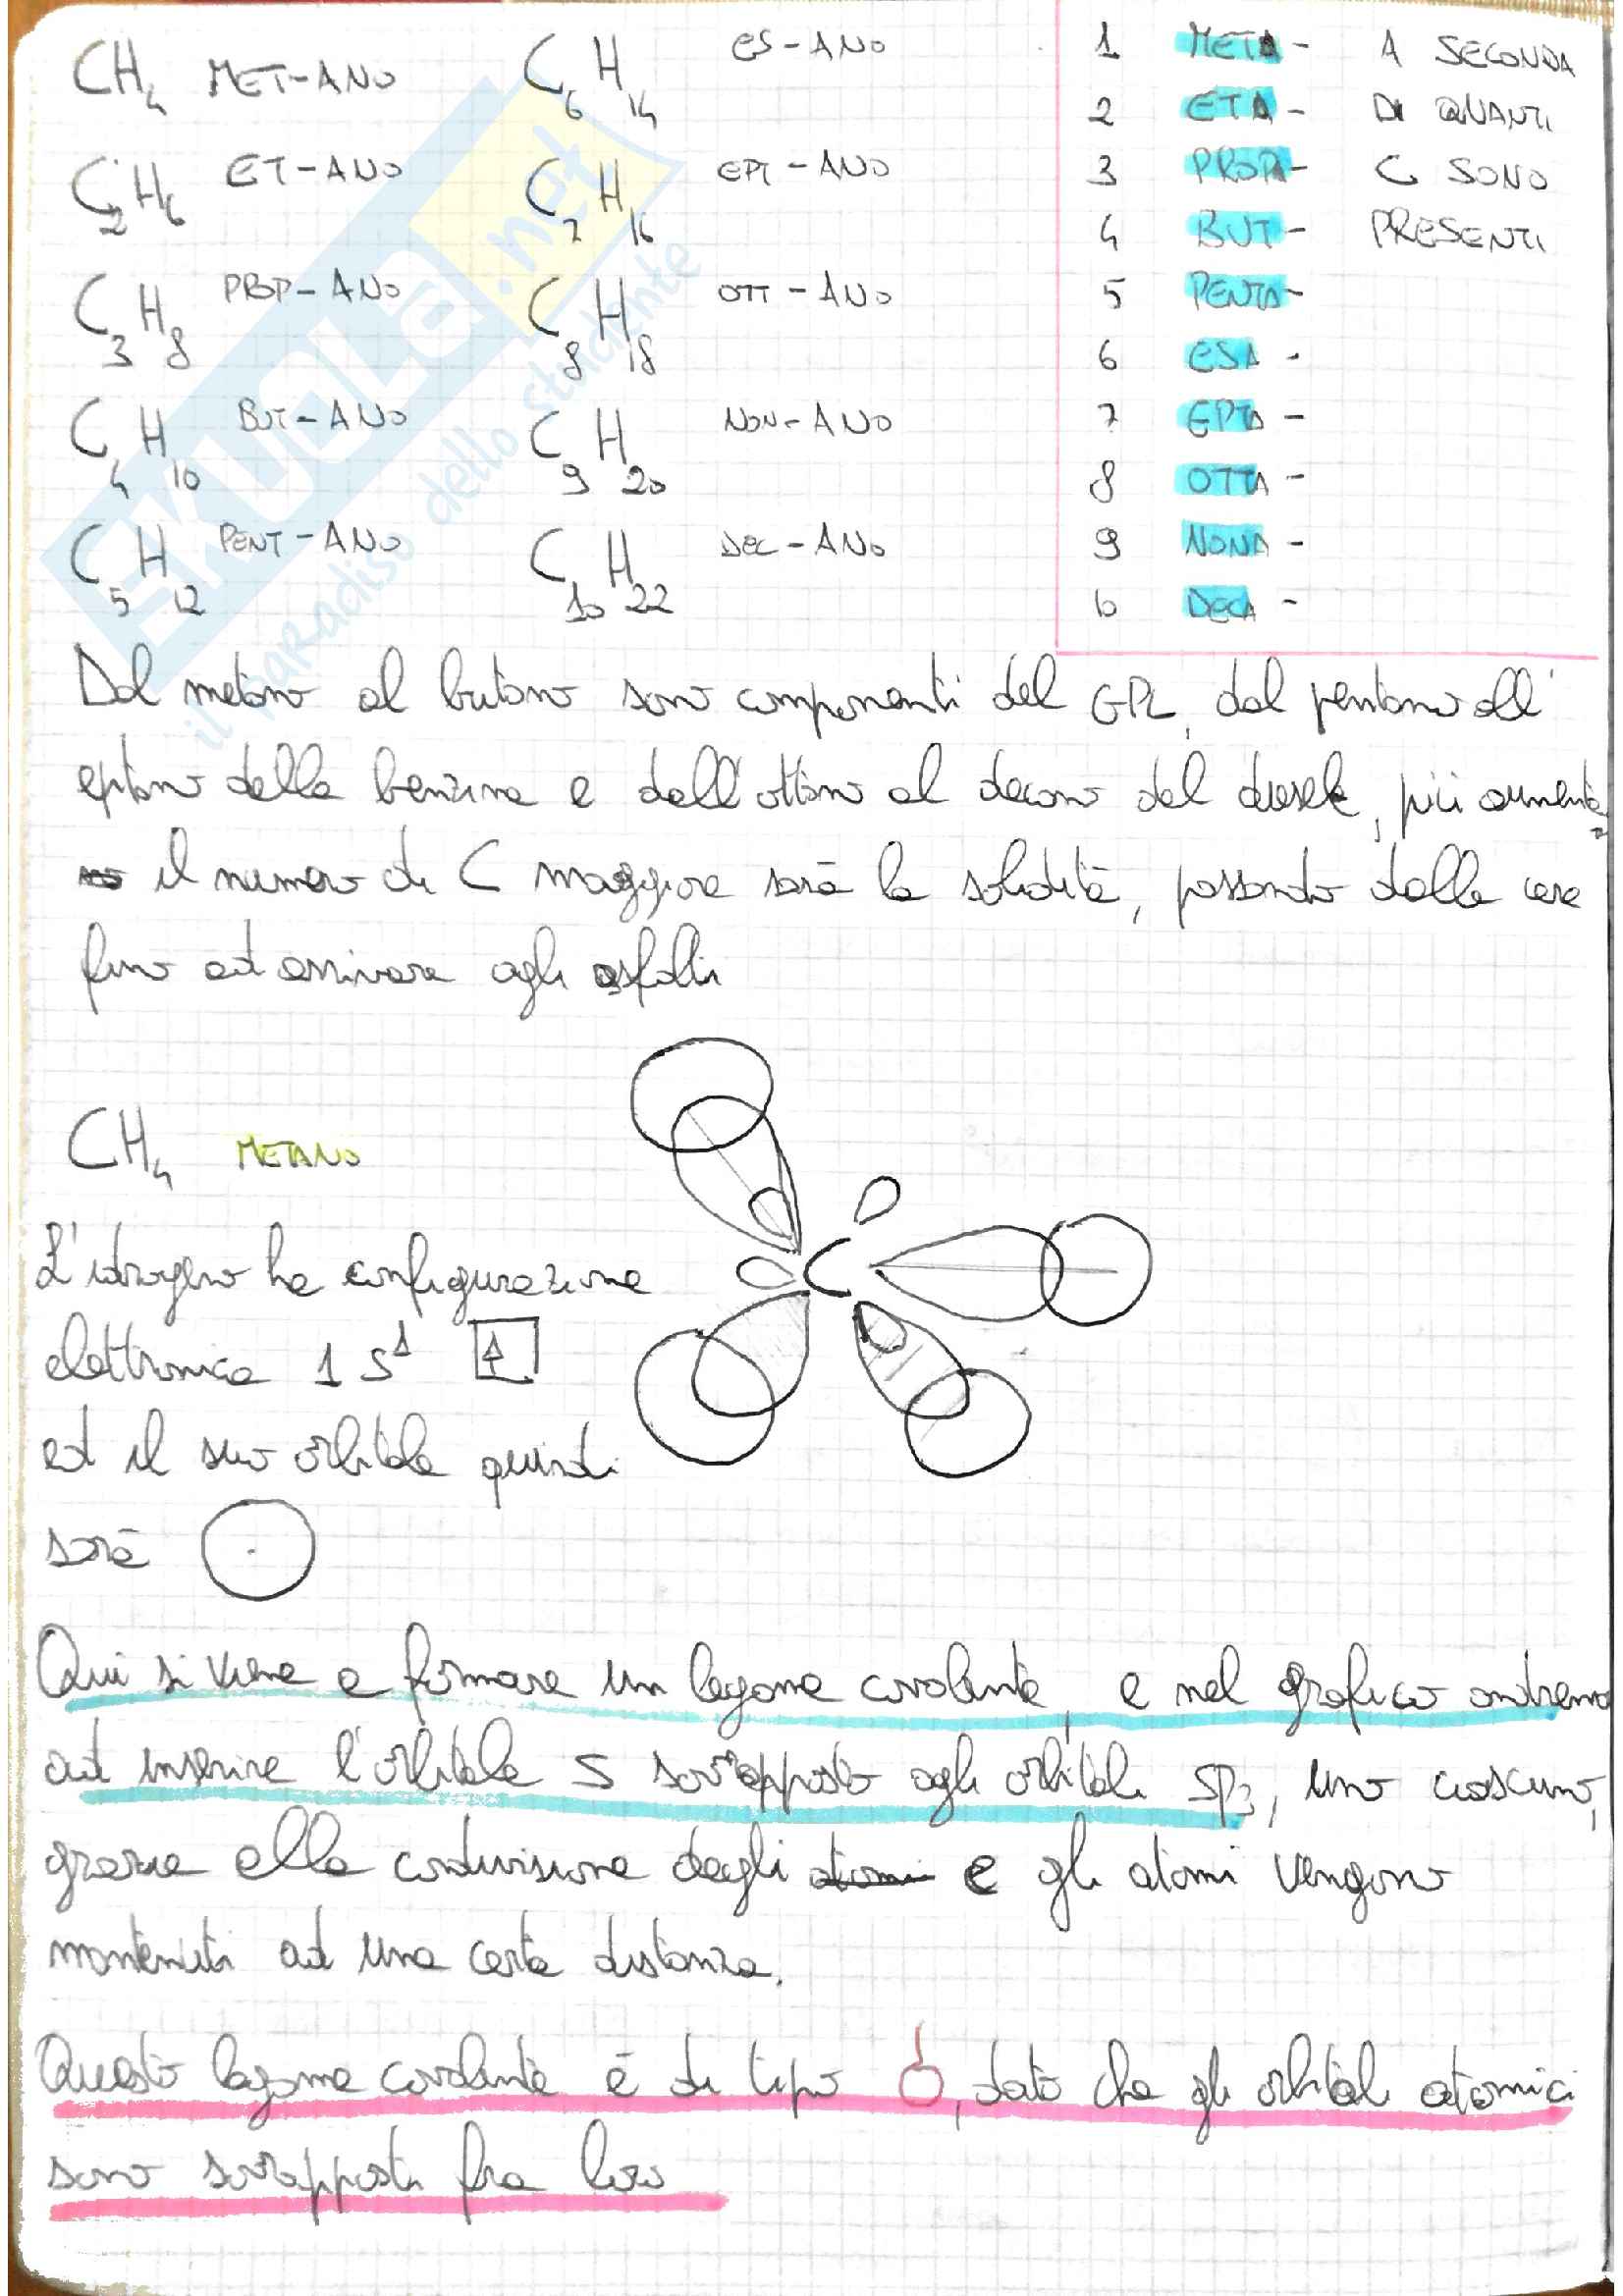 CH4 MET-ANO
C2H6 ET-ANO
C3H8 PROP-ANO
C4H10 BUT-ANO
C5H12 PENT-ANO
C6H14 ES-ANO
C7H16 EPT-ANO
C8H18 OTT-ANO
C9H20 NON-ANO
C10H22 DEC-ANO
1 META- A SECONDA
2 ETA- DI QUANTI
3 PROPA- C SONO
4 BUT- PRESENTI
5 PENTA-
6 ESA-
7 EPTA-
8 OTTA-
9 NONA-
10 DECA-
SKUOLA.net
il paradiso dello studente
Dal metano al butano sono componenti del GPL, dal pentano all'
eptano della benzina e dall'ottano al decano del diesel, più aumenta
il numero di C maggiore sarà la solidità, passando dalle cere
fino ad arrivare agli asfalti
CH4 METANO
C
L'idrogeno ha configurazione
elettronica 1s1 ↑
ed il suo orbitale quindi
sarà
Qui si viene a formare un legame covalente, e nel grafico andremo
ad inserire l'orbitale S sovrapposto agli orbitali sp3, uno ciascuno,
grazie alla condivisione degli atomi e gli atomi vengono
mantenuti ad una certa distanza.
Questo legame covalente è di tipo σ, dato che gli orbitali atomici
sono sovrapposti fra loro